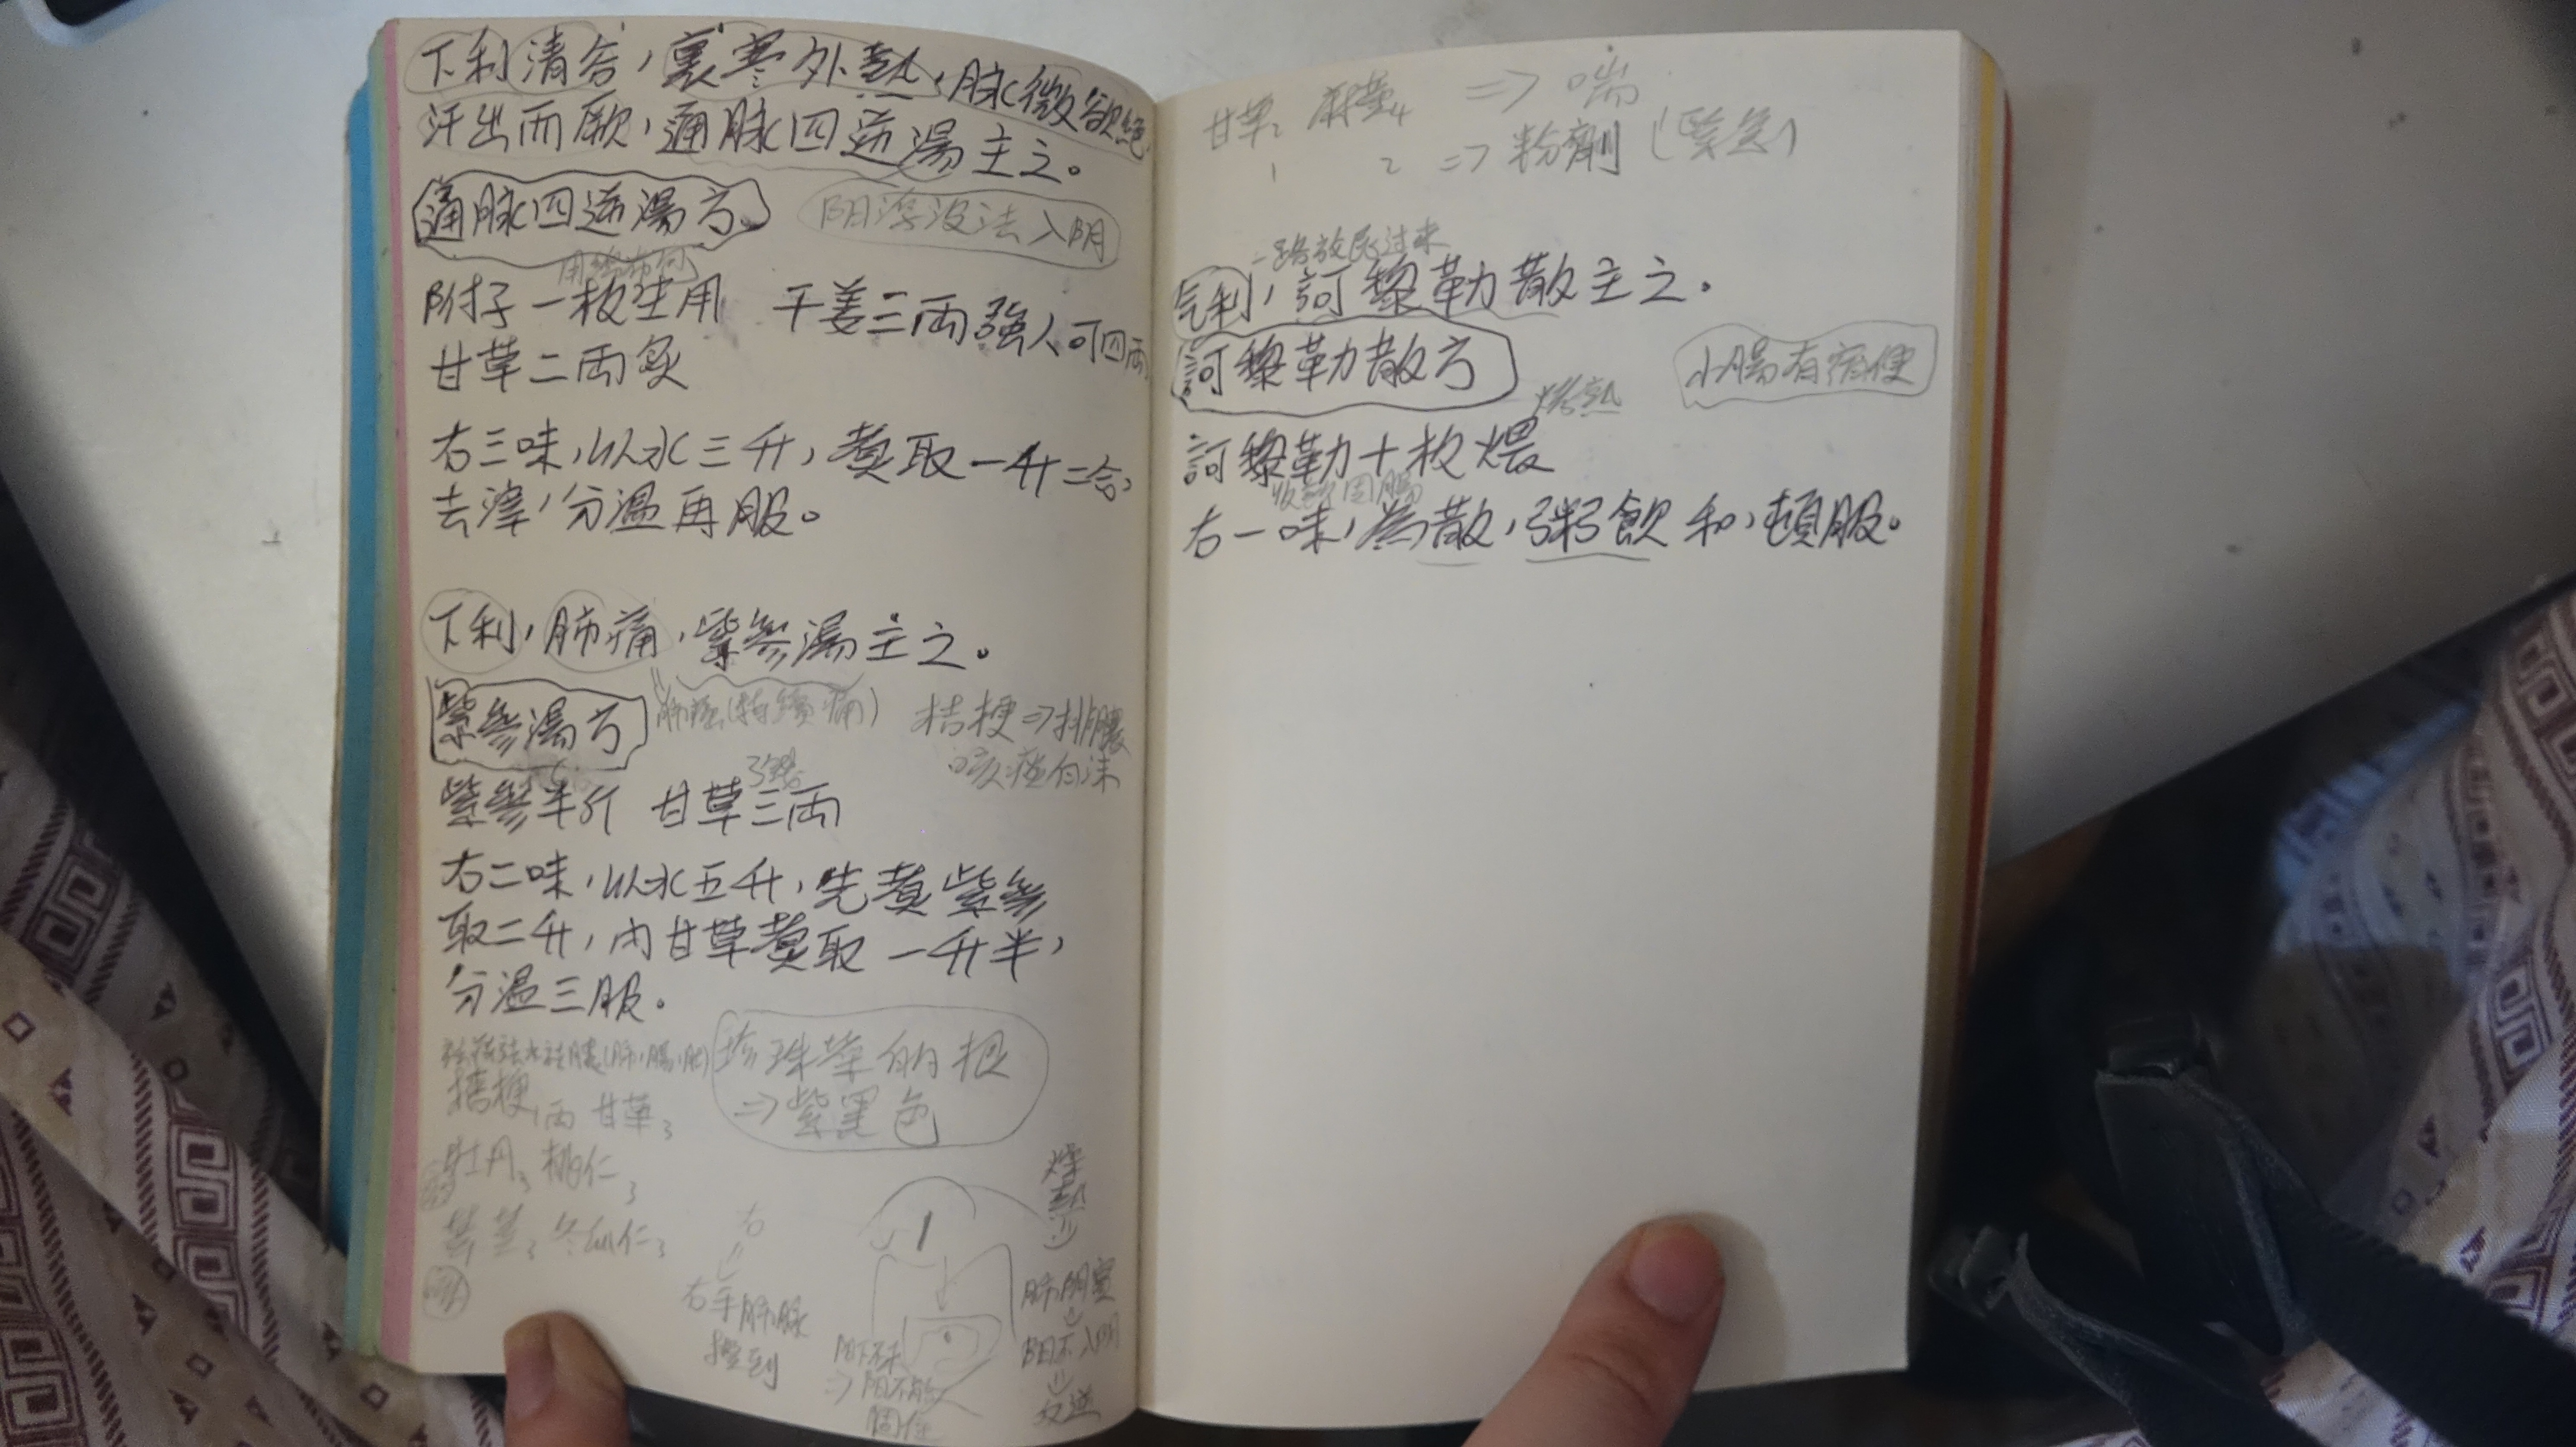 下利清谷，裏寒外熱，脉微欲絕
汗出而厥，通脉四逆湯主之。
通脉四逆湯方。
阳浮没法入阴
附子一枚生用 干姜三两強人可四两
甘草二两炙
右三味，以水三升，煮取一升二合，
去滓，分溫再服。
下利，肺痛，紫參湯主之。
紫參湯方
(持續痛)
桔梗⇒排膿
咳痰白沫
3錢
紫參半斤 甘草三两
右二味，以水五升，先煮紫參
取二升，内甘草煮取一升半，
分溫三服。
珍珠菜的根
⇒紫黑色
桔梗1两 甘草3
牡丹3 桃仁3
冬瓜仁3
右
右手肺脉
摸到
燥熱
肺阴實
阳不入阴
反逆
⇒阳不能
固住
甘草2 麻黄4 ⇒喘
1 2 ⇒粉劑(緊急)
一路放屁过来
气利，訶黎勒散主之.
訶黎勒散方
小腸有宿便
訶黎勒十枚煨
收歛固腸
右一味，為散，粥飲和，頓服。